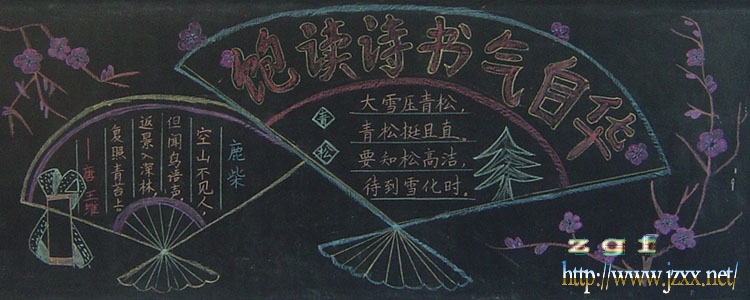 饱读诗书气自华
青松
大雪压青松，
青松挺且直。
要知松高洁，
待到雪化时。
鹿柴
空山不见人，
但闻鸟语声。
返景入深林，
复照青苔上。
——唐 王维
zgf
http://www.jzxx.net/